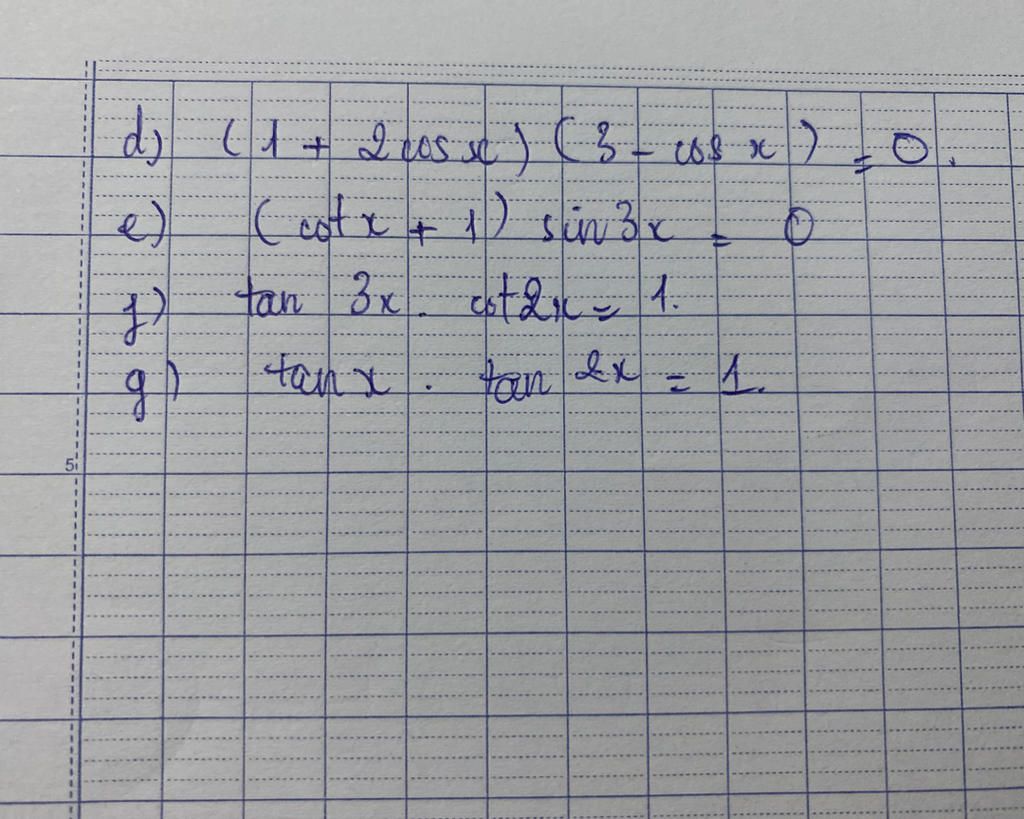 d) (1 + 2cos x) (3 - cos x) = 0.
e) (cot x + 1) sin 3x = 0
f) tan 3x . cot 2x = 1.
g) tan x . tan 2x = 1.
5